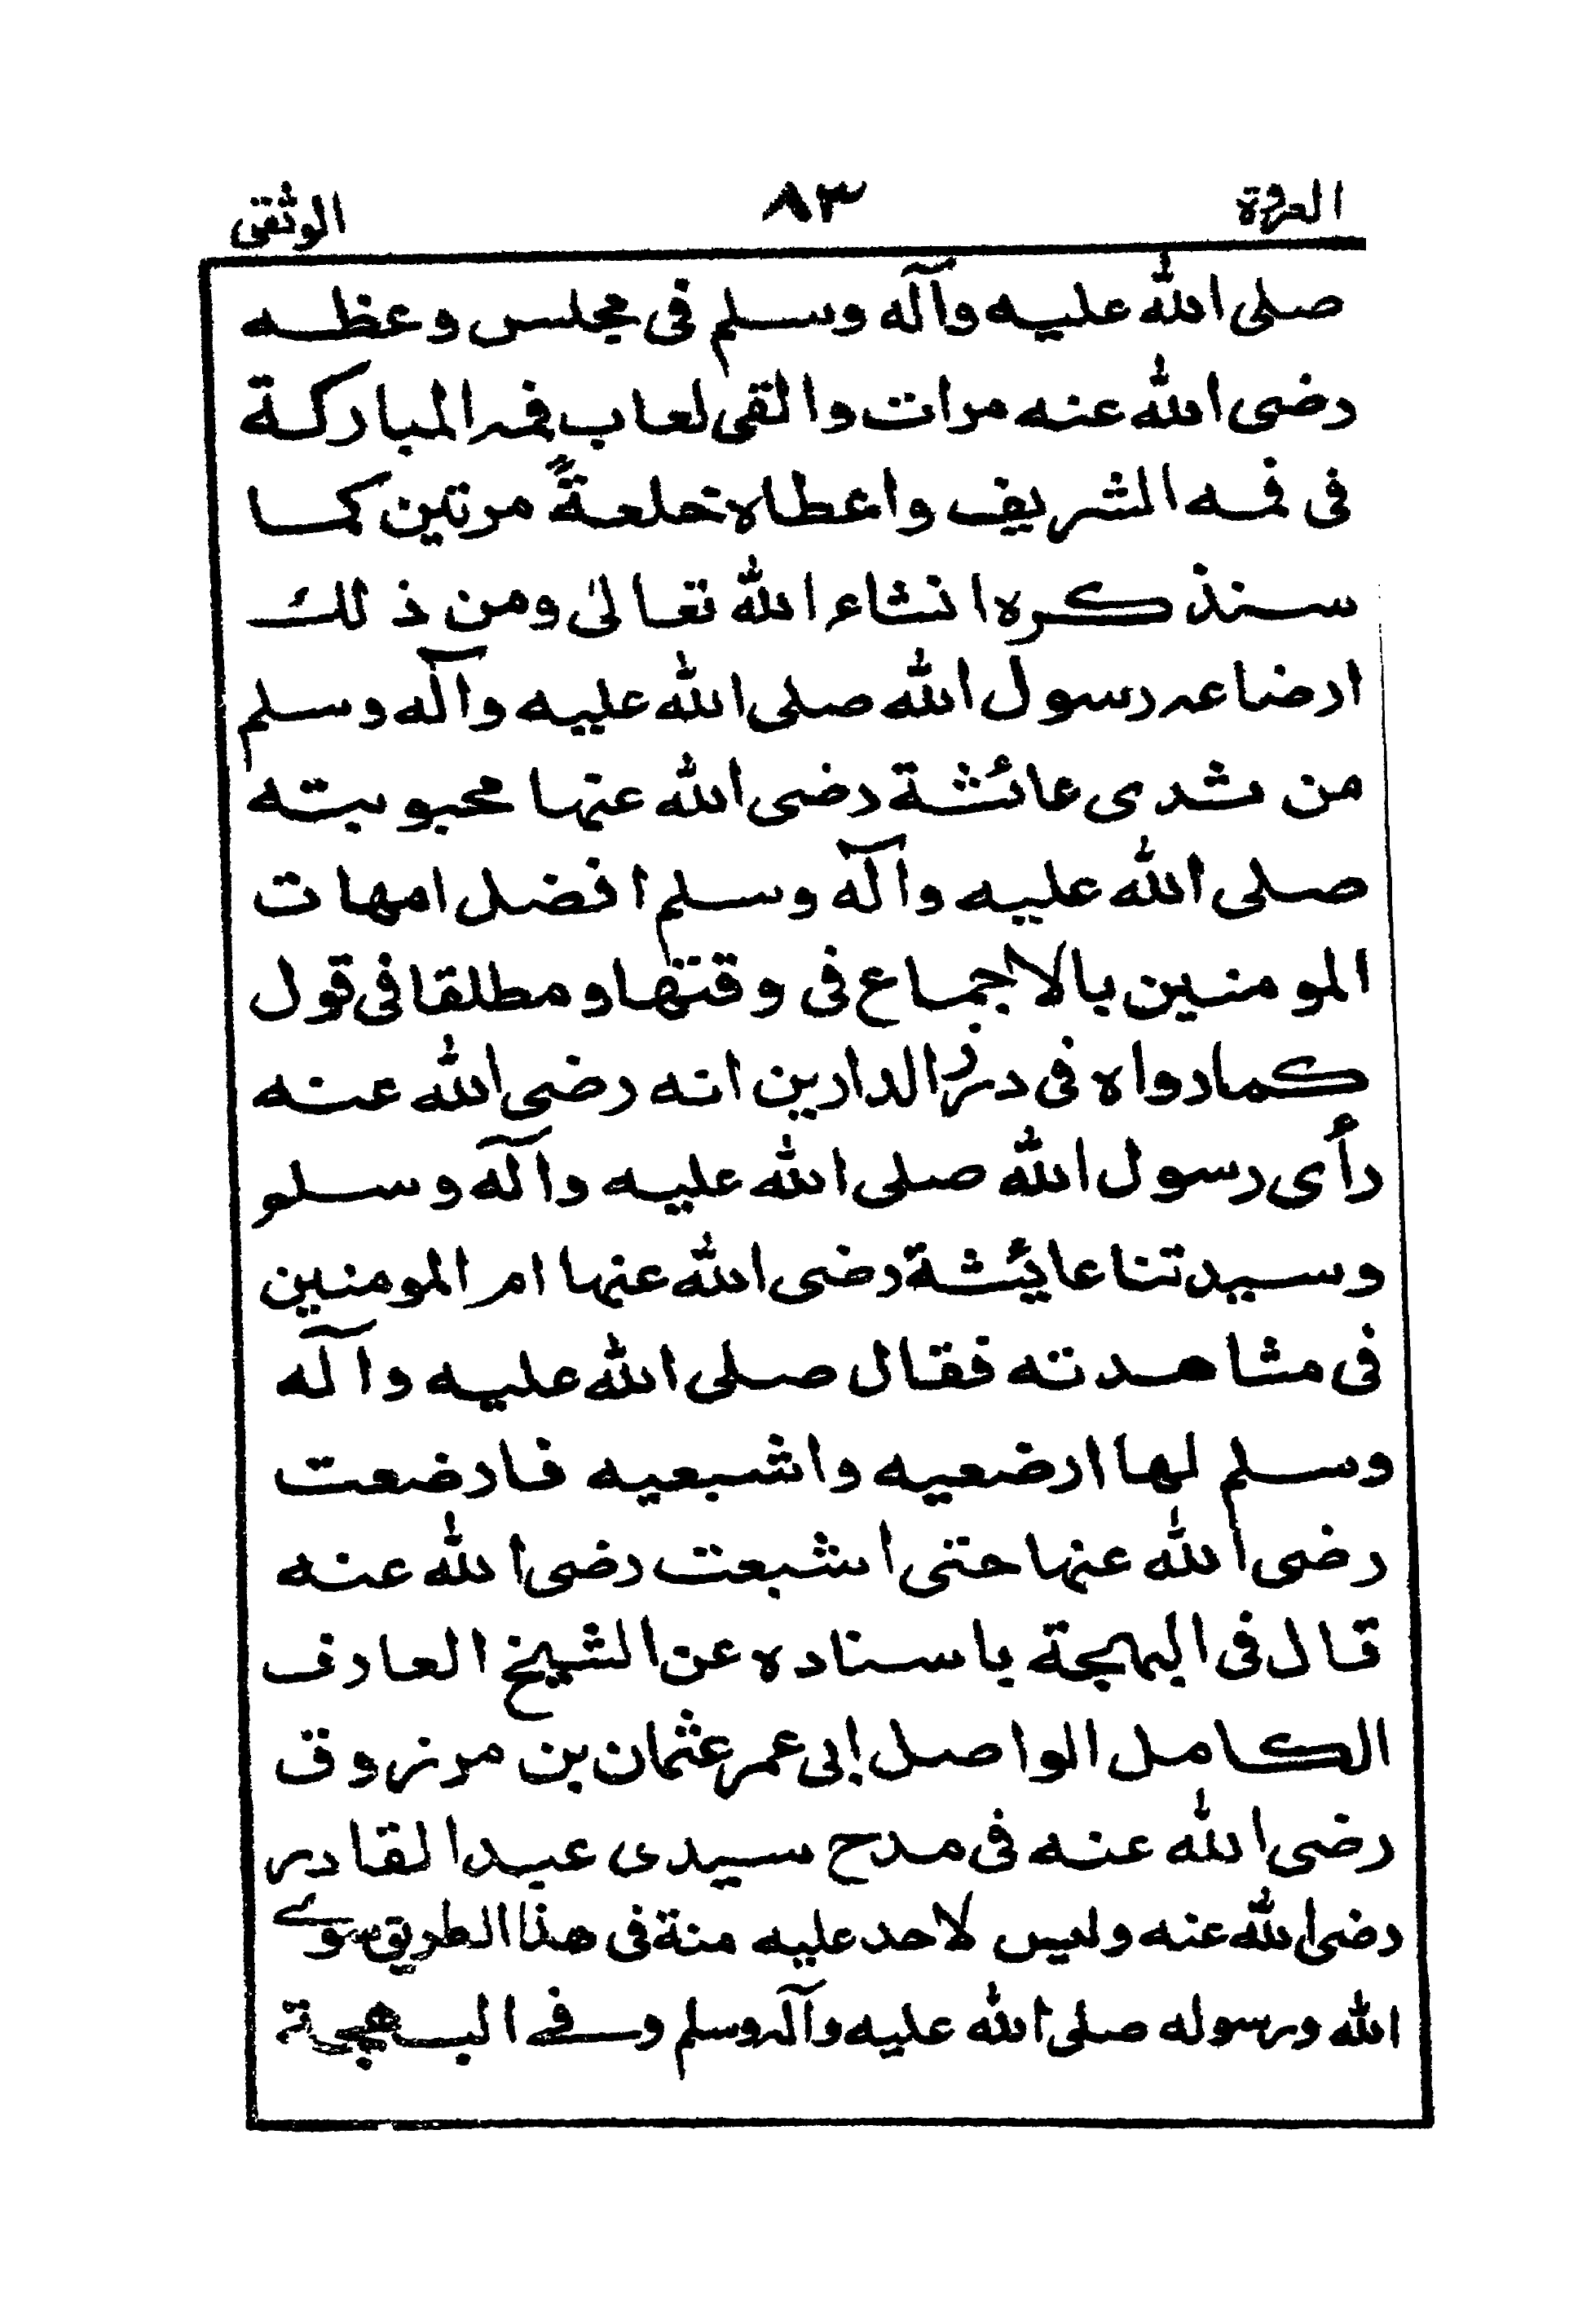 العروة ٨٣ الوثقى
صلى الله عليه وآله وسلم فى مجلس وعظه
رضى الله عنه مرات والقى لعاب فمه المباركة
فى فمه الشريف واعطاه خلعةً مرتين كما
سنذكره انشاء الله تعالىٰ ومن ذلك
ارضاعه رسول الله صلى الله عليه وآله وسلم
من ثدى عائشة رضى الله عنها محبوبته
صلى الله عليه وآله وسلم افضل امهات
المومنين بالاجماع فى وقتها ومطلقا فى قول
كما رواه فى درر الدارين انه رضى الله عنه
رأى رسول الله صلى الله عليه وآله وسلم
وسيدتنا عائشة رضى الله عنها ام المومنين
فى مشاهدته فقال صلى الله عليه وآله
وسلم لها ارضعيه واشبعيه فارضعت
رضى الله عنها حتى اشبعت رضى الله عنه
قال فى البهجة باسناده عن الشيخ العارف
الكامل الواصل ابى عمر عثمان بن مرزوق
رضى الله عنه فى مدح سيدى عبد القادر
رضى الله عنه وليس لاحد عليه منة فى هذا الطريق سوے
الله ورسوله صلى الله عليه وآله وسلم وفے البهجة